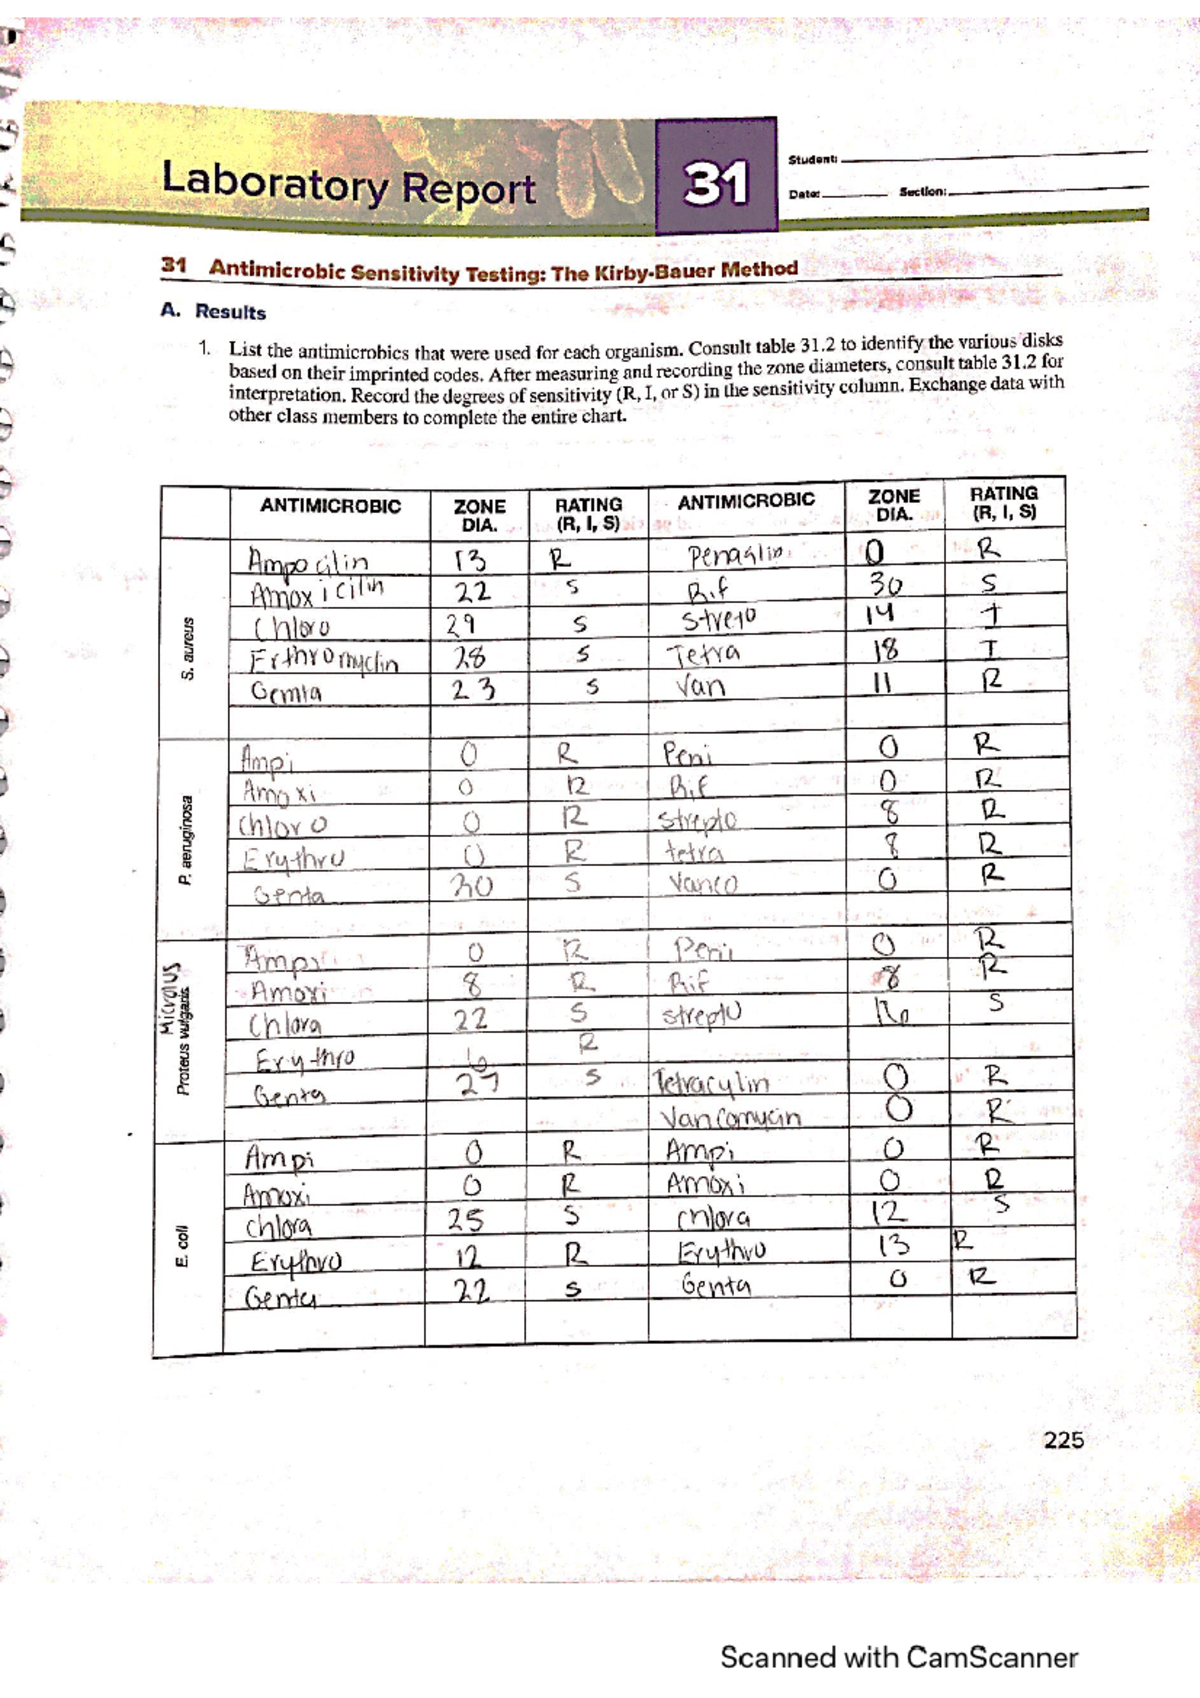 Laboratory Report
31
Student:
Date: Section:
31 Antimicrobic Sensitivity Testing: The Kirby-Bauer Method
A. Results
1. List the antimicrobics that were used for each organism. Consult table 31.2 to identify the various disks
based on their imprinted codes. After measuring and recording the zone diameters, consult table 31.2 for
interpretation. Record the degrees of sensitivity (R, I, or S) in the sensitivity column. Exchange data with
other class members to complete the entire chart.
ANTIMICROBIC ZONE DIA. RATING (R, I, S) ANTIMICROBIC ZONE DIA. RATING (R, I, S)
S. aureus
Ampocilin 13 R 0 R
Amoxicilin 22 S Rif 30 S
Chloro 29 S Strepto 14 I
Erthromyclin 28 S Tetra 18 I
23 S Van 11 R
P. aeruginosa
Ampi 0 R Peni 0 R
Amoxi 0 R Rif 0 R
Chloro 0 R strepto 8 R
Erythro 0 R tetra 8 R
Genta 30 S Vanco 0 R
Microlus
Proteus vulgaris
Ampi 0 R Peni 0 R
Amoxi 8 R Rif 8 R
Chlora 22 S strepto S
Erythro R
Genta 27 S Tetracylin 0 R
Vancomycin 0 R
E. coli
Ampi 0 R Ampi 0 R
Amoxi 0 R Amoxi 0 R
Chlora 25 S Chlora 12 S
Erythro 12 R Erythro 13 R
Genta 22 S Genta 0 R
225
Scanned with CamScanner